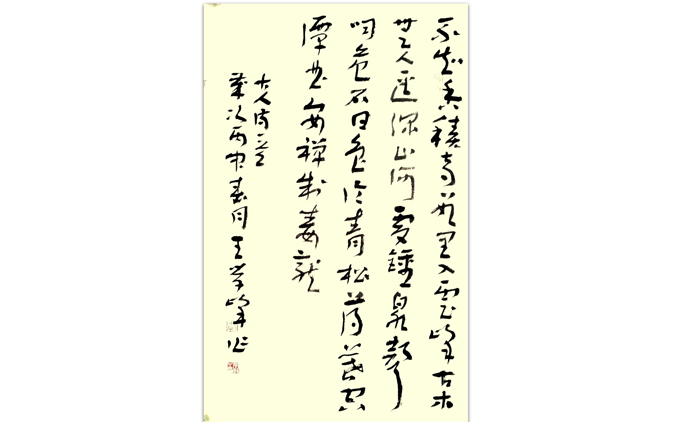 不知香積寺數里入雲峰古木
無人逕深山何處鐘泉聲
咽危石日色冷青松薄暮空
潭曲安禪制毒龍
古人詩一首
歲次丙申春月王学峰作